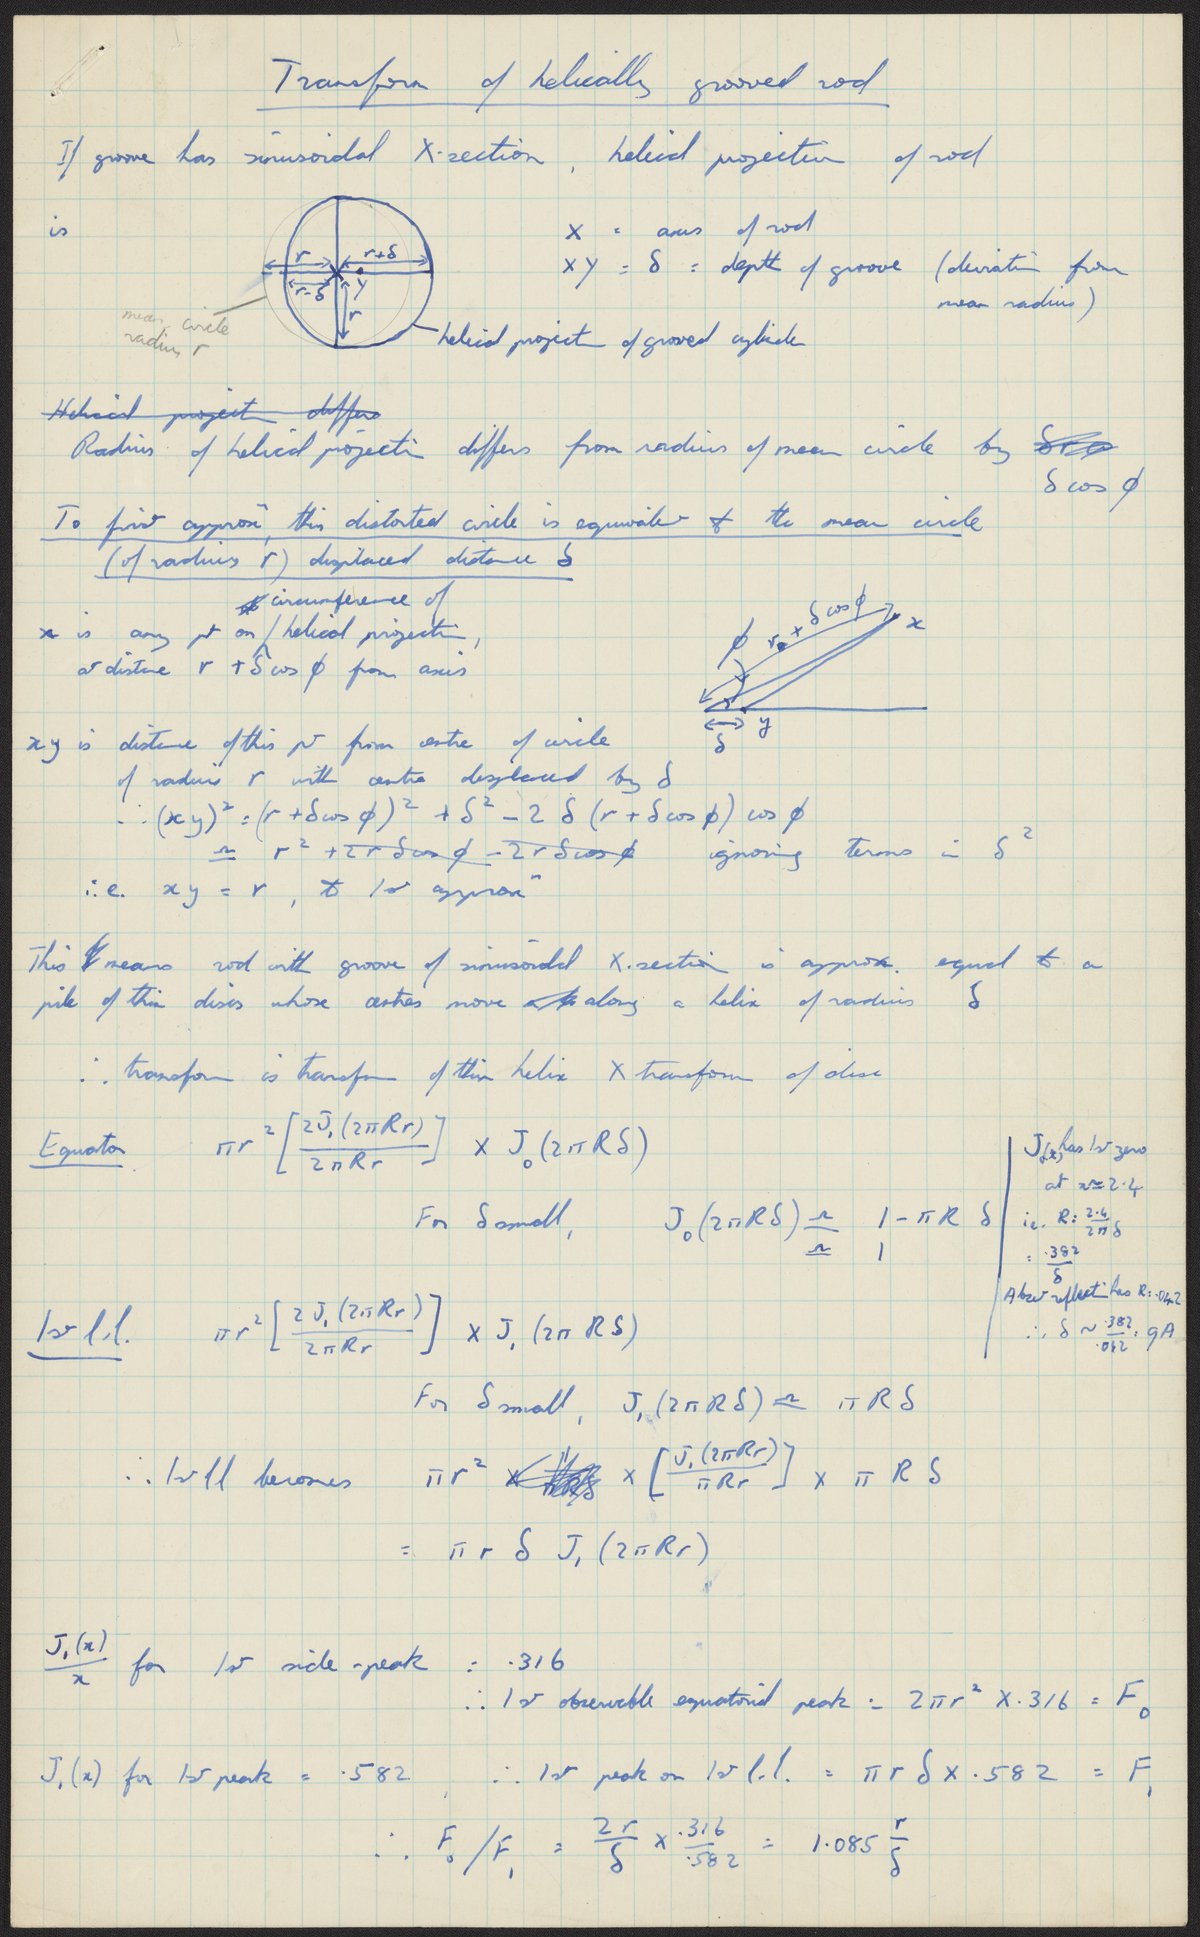 Transform of helically grooved rod
If groove has sinusoidal X-section, helical projection of rod
is
X = axis of rod
XY = δ = depth of groove (deviation from
mean radius)
r
r+δ
r-δ
Y
r
mean circle
radius r
helical project of grooved cylinder
Helical project differs
Radius of helical projectn differs from radius of mean circle by
δ cos φ
To first approxn, this distorted circle is equivalent to the mean circle
(of radius r) displaced distance δ
circumference of
x is any pt on / helical projectn,
at distance r + δ cos φ from axis
φ
r + δ cos φ
x
δ
y
xy is distance of this pt from centre of circle
of radius r with centre displaced by δ
∴ (xy)² = (r + δ cos φ)² + δ² - 2 δ (r + δ cos φ) cos φ
≏ r² + 2r δ cos φ - 2r δ cos φ ignoring terms in δ²
i.e. xy = r, to 1st approxn
This means rod with groove of sinusoidal X-section is approx. equal to a
pile of thin discs whose centres move along a helix of radius δ
∴ transform is transform of thin helix X transform of disc
Equator πr² [2J₁(2πRr) / 2πRr] × J₀(2πRδ)
For δ small, J₀(2πRδ) ≏ 1 - πR δ
≏ 1
J₀(x) has 1st zero
at x = 2.4
i.e. R = 2.4 / 2πδ
= .382 / δ
Above reflectn has R = .042
∴ δ ~ .382 / .042 = 9A
1st l.l. πr² [2J₁(2πRr) / 2πRr] × J₁(2πRδ)
For δ small, J₁(2πRδ) ≏ πRδ
∴ 1st ll becomes πr² × [J₁(2πRr) / πRr] × π R δ
= π r δ J₁(2πRr)
J₁(x) / x for 1st side-peak = .316
∴ 1st observable equatorial peak = 2πr² × .316 = F₀
J₁(x) for 1st peak = .582, ∴ 1st peak on 1st l.l. = π r δ × .582 = F₁
∴ F₀/F₁ = 2r / δ × .316 / .582 = 1.085 r / δ